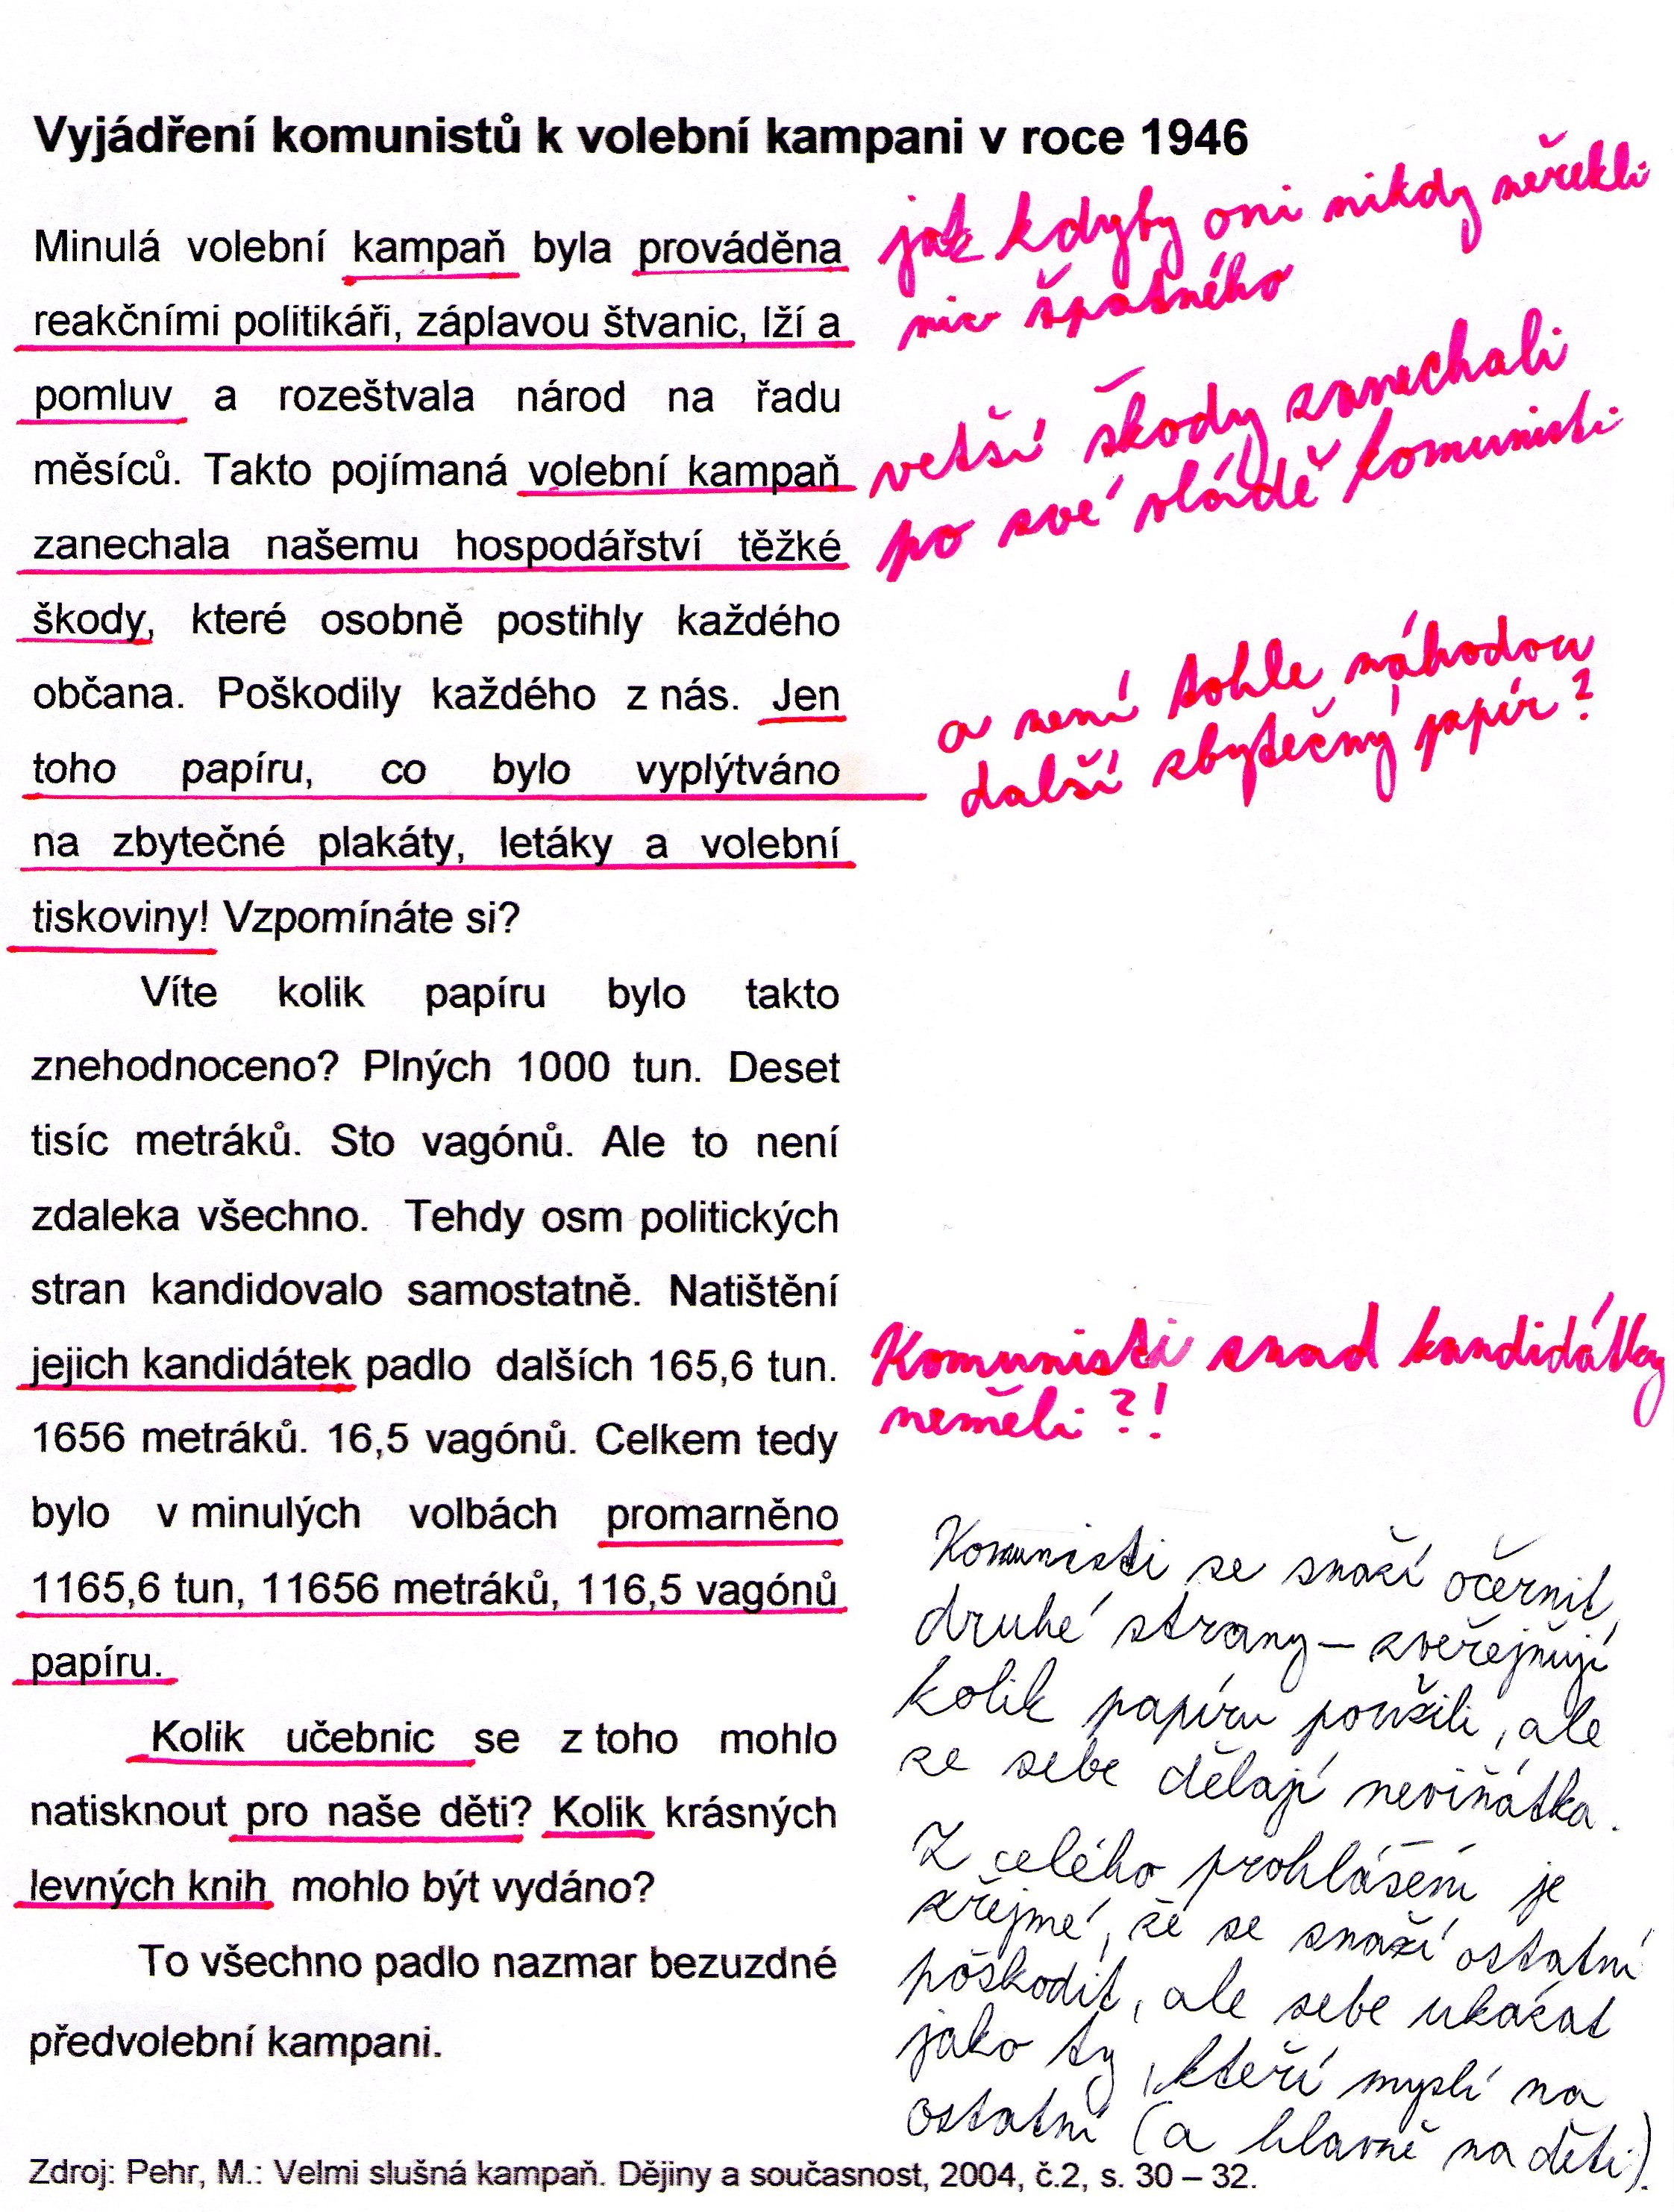 Vyjádření komunistů k volební kampani v roce 1946
Minulá volební kampaň byla prováděna
reakčními politikáři, záplavou štvanic, lží a
pomluv a rozeštvala národ na řadu
měsíců. Takto pojímaná volební kampaň
zanechala našemu hospodářství těžké
škody, které osobně postihly každého
občana. Poškodily každého z nás. Jen
toho papíru, co bylo vyplýtváno
na zbytečné plakáty, letáky a volební
tiskoviny! Vzpomínáte si?
Víte kolik papíru bylo takto
znehodnoceno? Plných 1000 tun. Deset
tisíc metráků. Sto vagónů. Ale to není
zdaleka všechno. Tehdy osm politických
stran kandidovalo samostatně. Natištění
jejich kandidátek padlo dalších 165,6 tun.
1656 metráků. 16,5 vagónů. Celkem tedy
bylo v minulých volbách promarněno
1165,6 tun, 11656 metráků, 116,5 vagónů
papíru.
Kolik učebnic se z toho mohlo
natisknout pro naše děti? Kolik krásných
levných knih mohlo být vydáno?
To všechno padlo nazmar bezuzdné
předvolební kampani.
jak kdyby oni nikdy neřekli
nic špatného
vetší škody zanechali
po své vládě komunisti
a není tohle náhodou
další zbytečný papír?
Komunisti snad kandidátky
neměli?!
Komunisti se snaží očernit
druhé strany – zveřejňují
kolik papíru použili, ale
ze sebe dělají neviňátka.
Z celého prohlášení je
zřejmé, že se snaží ostatní
poškodit, ale sebe ukázat
jako ty, kteří myslí na
ostatní (a hlavně na děti).
Zdroj: Pehr, M.: Velmi slušná kampaň. Dějiny a současnost, 2004, č.2, s. 30 – 32.